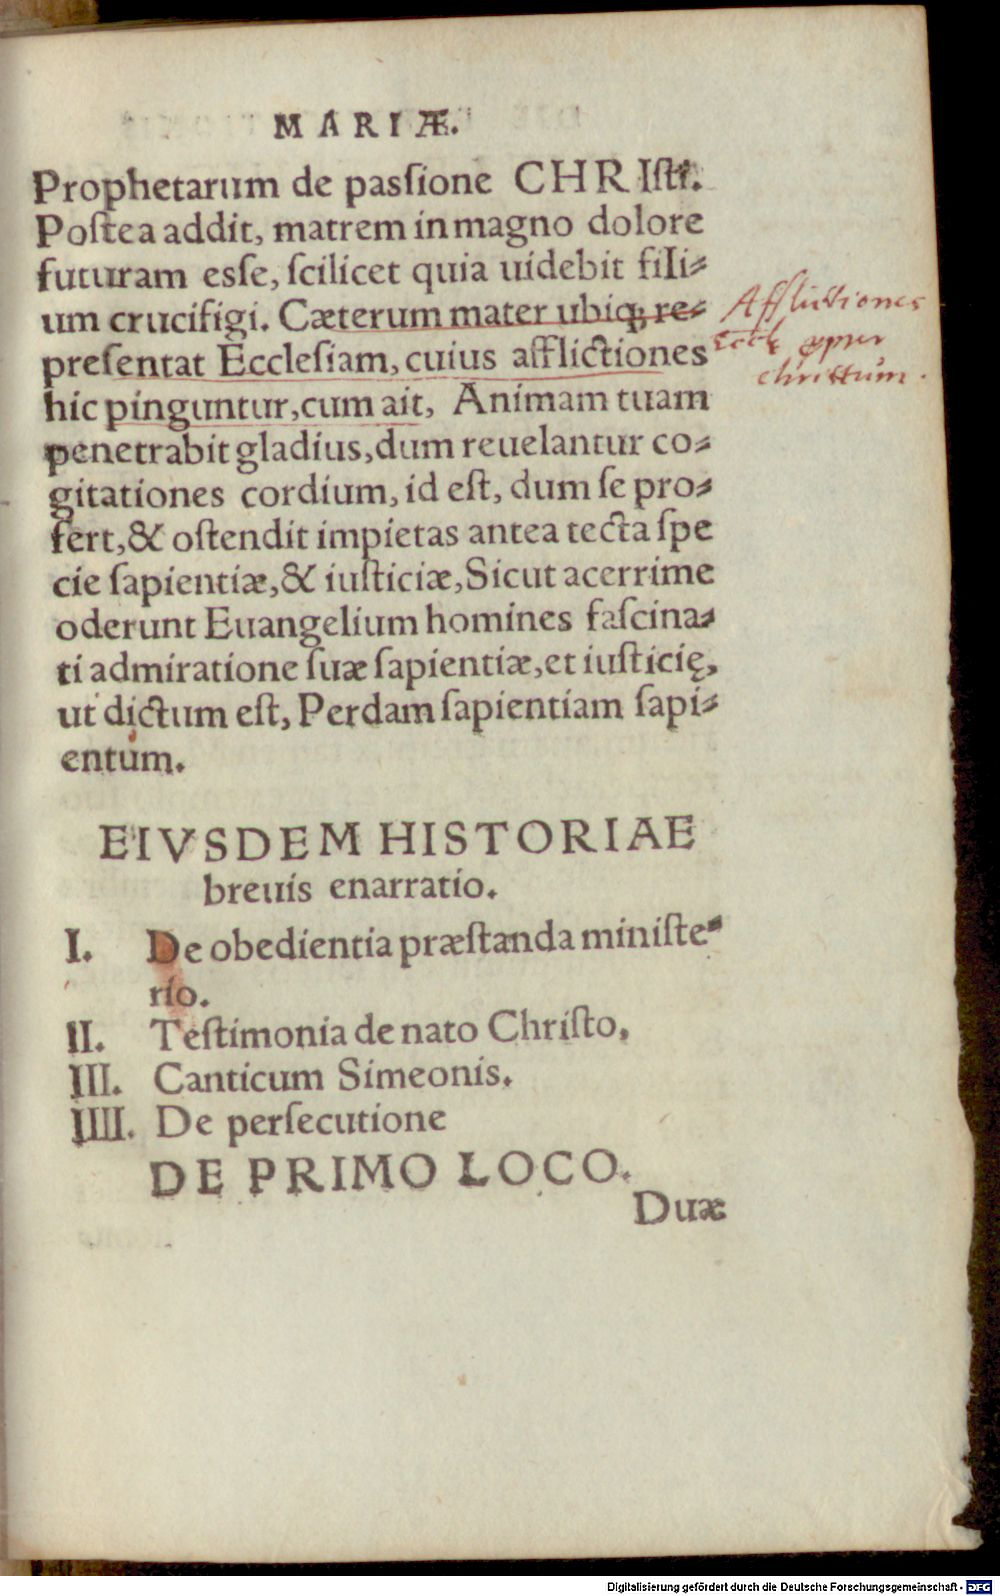 MARIÆ.
Prophetarum de paſsione CHRIſti.
Poſtea addit, matrem in magno dolore
futuram eſſe, ſcilicet quia uidebit fili⸗
um crucifigi. Cæterum mater ubiqꝫ re⸗
preſentat Eccleſiam, cuius afflictiones
hic pinguntur, cum ait, Animam tuam
penetrabit gladius, dum reuelantur co⸗
gitationes cordium, id eſt, dum ſe pro⸗
fert, & oſtendit impietas antea tecta ſpe
cie ſapientiæ, & iuſticiæ, Sicut acerrime
oderunt Euangelium homines faſcina⸗
ti admiratione ſuæ ſapientiæ, et iuſticię,
ut dictum eſt, Perdam ſapientiam ſapi⸗
entum.
Afflictiones
christum.
EIVSDEM HISTORIAE
breuis enarratio.
I. De obedientia præſtanda miniſte⸗
rio.
II. Teſtimonia de nato Chriſto.
III. Canticum Simeonis.
IIII. De perſecutione
DE PRIMO LOCO.
Duæ
Digitalisierung gefördert durch die Deutsche Forschungsgemeinschaft - DFG